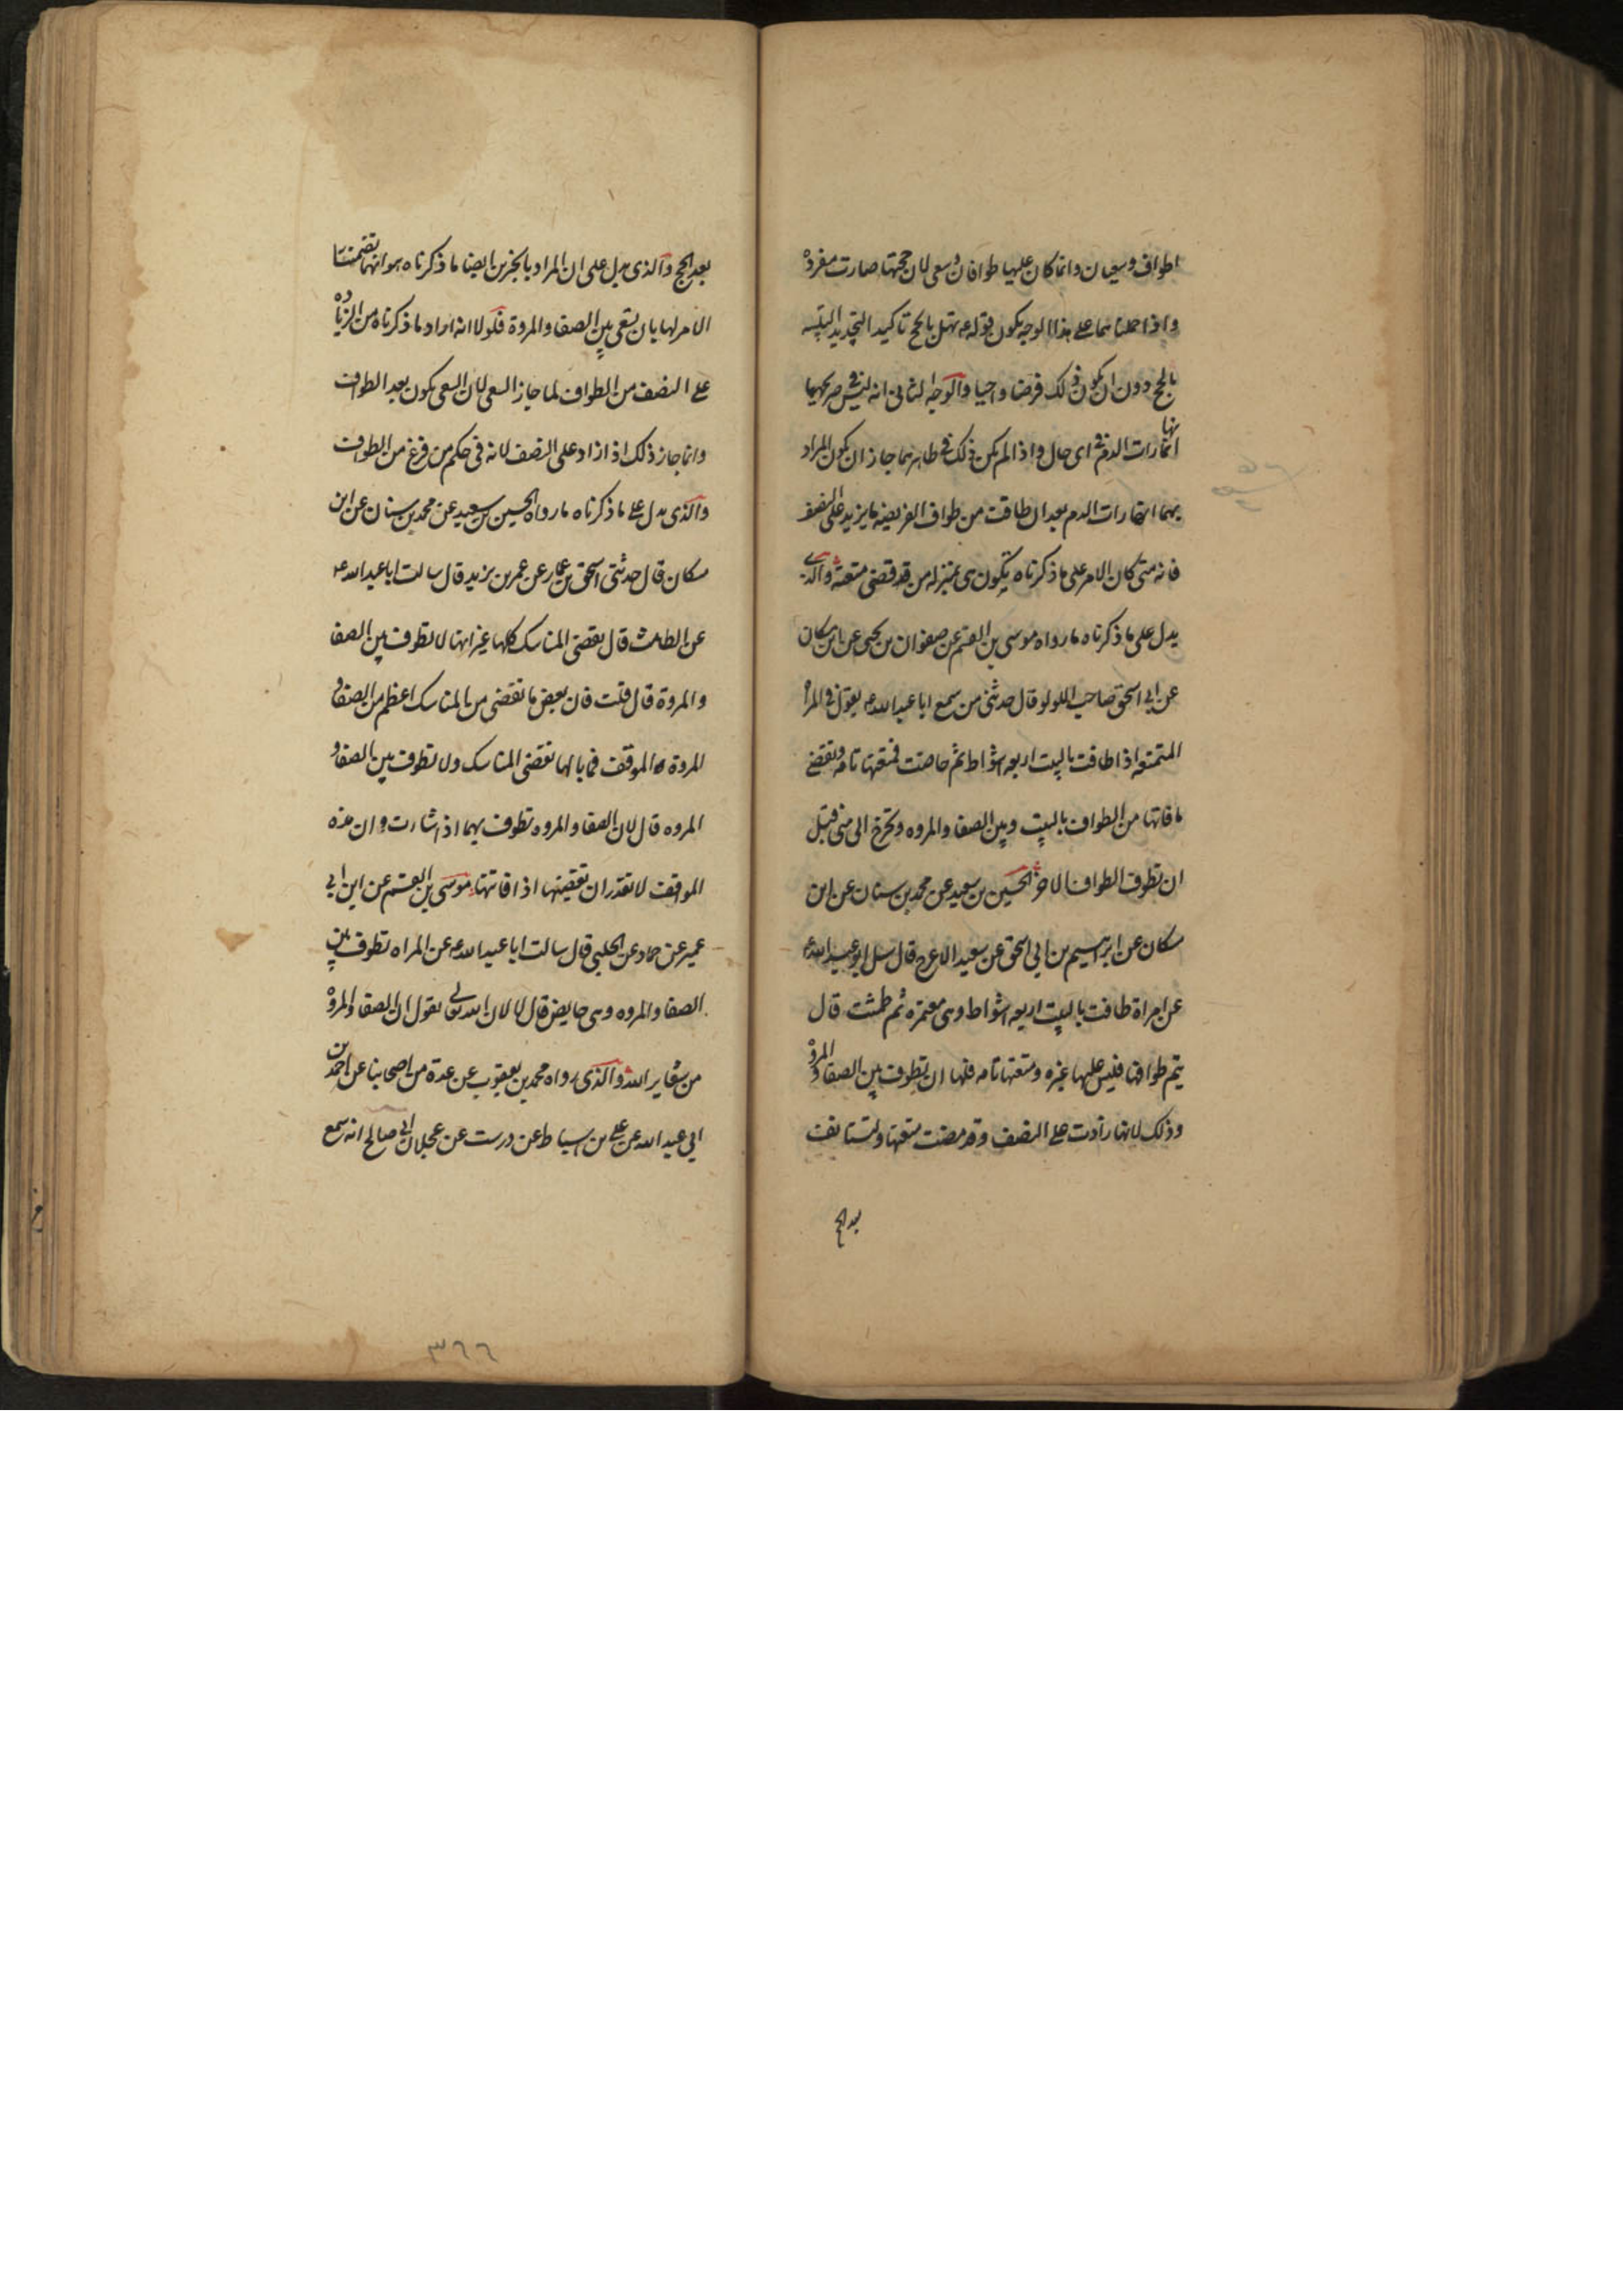 اطواف وسعيان وانما كان عليها طوافان وسعى لان حجتها صارت مفردة
واذا حملناهما على هذا الوجه يكون قوله ع تهل بالحج تاكيد التجديد التلبيه
بالحج دون ان يكون ذلك فرضا واجبا والوجه الثانى انه ليس فى صريحهما
انها انما رات الدم فى اى حال واذا لم يكن ذلك فى ظاهرهما جاز ان يكون المراد
بهما انها رات الدم بعد ان طافت من طواف الفريضه ما يزيد على النصف
فانه متى كان الامر على ما ذكرناه تكون هى بمنزله من قد قضى متعته والذى
يدل على ما ذكرناه ما رواه موسى بن القسم عن صفوان بن يحيى عن ابن مسكان
عن ابى اسحق صاحب اللولو قال حدثنى من سمع ابا عبد الله ع يقول فى المراة
المتمتعه اذا طافت بالبيت اربعه اشواط ثم حاضت فمتعتها تامه وتقضى
ما فاتها من الطواف بالبيت وبين الصفا والمروه وتخرج الى منى قبل
ان تطوف الطواف الاخر الحسين بن سعيد عن محمد بن سنان عن ابن
مسكان عن ابرهيم بن ابى اسحق عن سعيد الاعرج قال سئل ابو عبد الله ع
عن امراة طافت بالبيت اربعه اشواط وهى معتمره ثم طمثت قال
يتم طوافها فليس عليها غيره ومتعتها تامه فلها ان تطوف بين الصفا والمروة
وذلك لانها زادت على النصف وقد مضت متعتها ولتستانف
بعد الحج
بعد الحج والذى يدل على ان المراد بالخبرين ايضا ما ذكرناه هو انهما تضمنتا
الامر لها بان تسعى بين الصفا والمروة فلولا انه اراد ما ذكرناه من الزياده
على النصف من الطواف لما جاز السعى لان السعى يكون بعد الطواف
وانما جاز ذلك اذا زاد على النصف لانه فى حكم من فرغ من الطواف
والذى يدل على ما ذكرناه ما رواه الحسين بن سعيد عن محمد بن سنان عن ابن
مسكان قال حدثنى اسحق بن عمار عن عمر بن يزيد قال سالت ابا عبد الله ع
عن الطامث قال تقضى المناسك كلها غير انها لا تطوف بين الصفا
والمروة قال قلت فان بعض ما تقضى من المناسك اعظم من الصفا و
المروة والموقف فما بالها تقضى المناسك ولا تطوف بين الصفا و
المروه قال لان الصفا والمروه تطوف بهما اذا شاءت وان هذه
المواقف لا تقدر ان تقضيها اذا فاتتها موسى بن القسم عن ابن ابى
عمير عن حماد عن الحلبى قال سالت ابا عبد الله ع عن المراه تطوف بين
الصفا والمروه وهى حايض قال لا لان الله تعالى يقول ان الصفا والمروة
من شعاير الله والذى رواه محمد بن يعقوب عن عدة من اصحابنا عن احمد بن
ابى عبد الله عن على بن اسباط عن درست عن عجلان ابى صالح انه سمع
٣٦٦